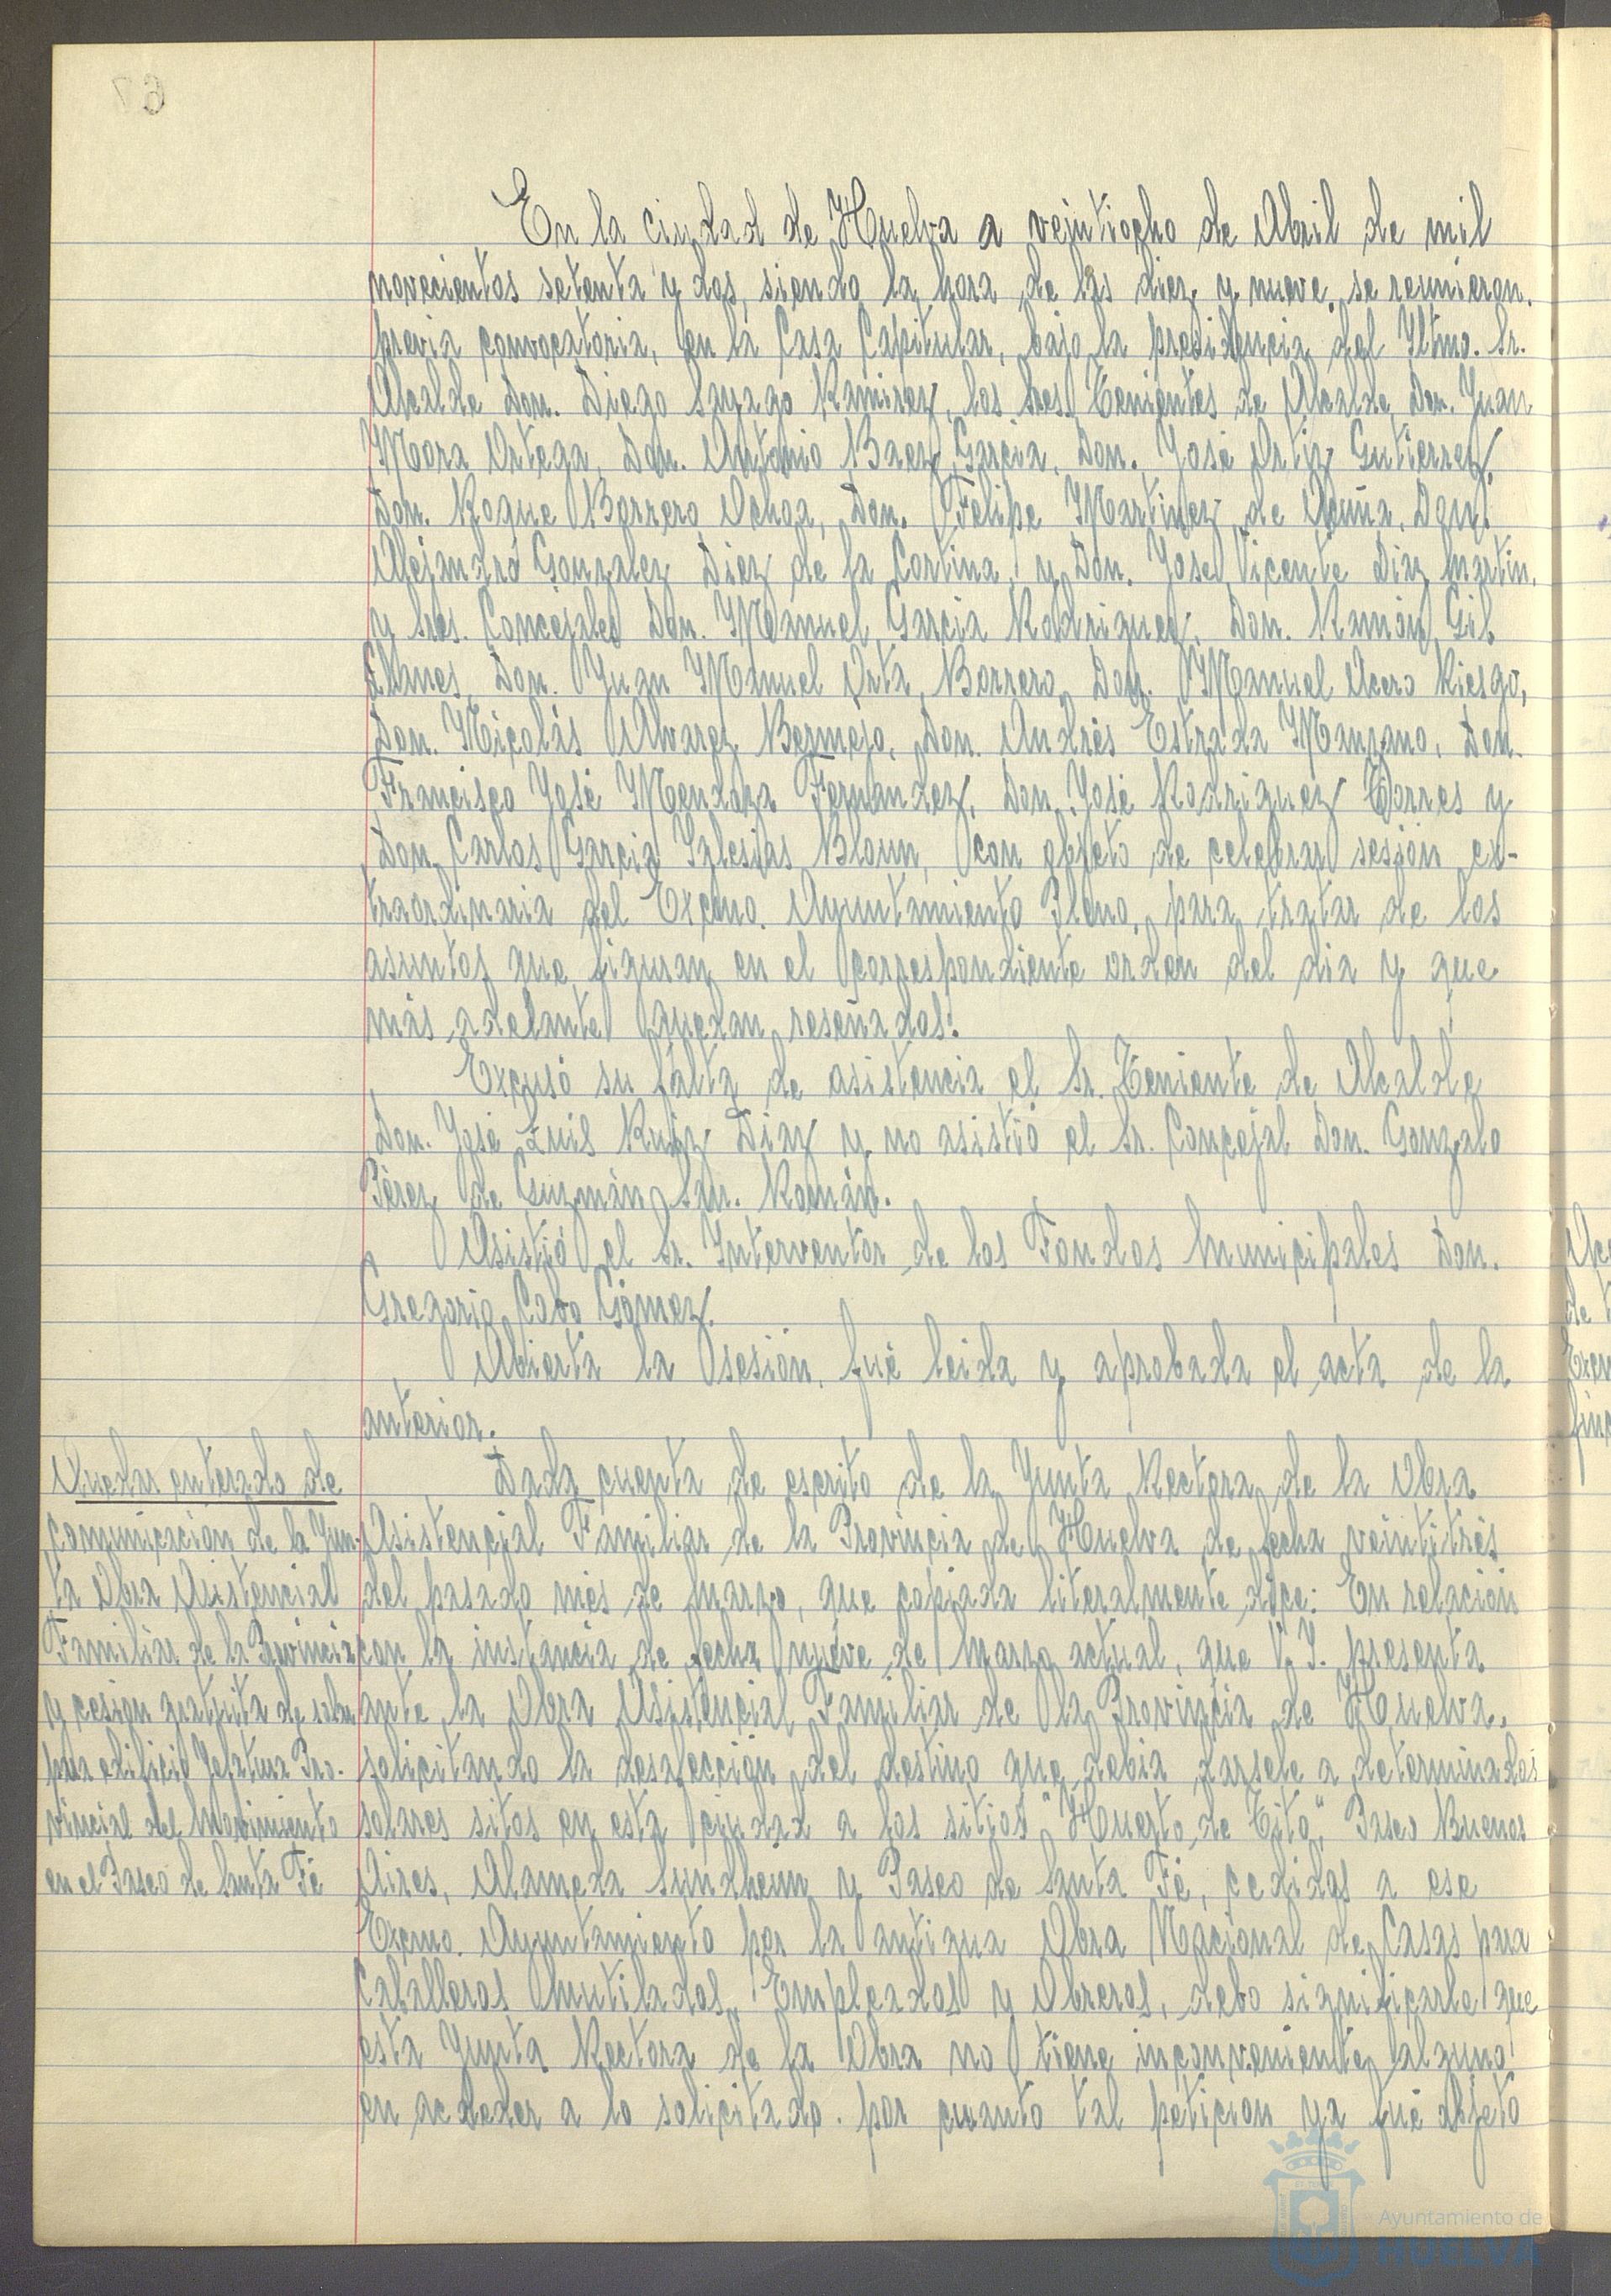 En la ciudad de Huelva a veintiocho de Abril de mil
novecientos setenta y dos, siendo la hora de las diez y nueve, se reunieron,
previa convocatoria, en la Casa Capitular, bajo la presidencia del Iltmo. Sr.
Alcalde Don. Diego Sayago Ramirez, los Sres. Tenientes de Alcalde, Don. Juan
Mora Ortega, Don. Antonio Baez Garcia, Don. José Ortiz Gutierrez,
Don. Roque Borrero Ochoa, Don. Felipe Martinez de Acuña, Don.
Alejandro Gonzalez Diez de la Cortina, y Don. José Vicente Diaz Martin,
y Sres. Concejales Don. Manuel Garcia Rodriguez, Don. Ramón Gil
Llanes, Don. Juan Manuel Orta Borrero, Don. Manuel Acero Riesgo,
Don. Nicolás Alvarez Bermejo, Don. Andrés Estrada Manzano, Don.
Francisco José Mendoza Fernandez, Don. José Rodriguez Torres y
Don. Carlos Garcia Iglesias Bloun, con objeto de celebrar sesión ex-
traordinaria del Excmo. Ayuntamiento Pleno, para tratar de los
asuntos que figuran en el correspondiente orden del dia y que
más adelante quedan reseñados.
Excusó su falta de asistencia el Sr. Teniente de Alcalde
Don. José Luis Ruiz Diaz y no asistió el Sr. Concejal Don. Gonzalo
Pérez de Guzmán San. Román.
Asistió el Sr. Interventor de los Fondos Municipales Don.
Gregorio Cabo Gómez.
Abierta la sesión, fué leida y aprobada el acta de la
anterior.
Quedar enterado de
comunicación de la Jun-
ta Obra Asistencial
Familiar de la Provincia
y cesion gratuita de solar
para edificio Jefatura Pro-
vincial del Movimiento
en el Paseo de Santa Fé
Dada cuenta de escrito de la Junta Rectora de la Obra
Asistencial Familiar de la Provincia de Huelva de fecha veintitrés
del pasado més de Marzo, que copiada literalmente dice: En relación
con la instancia de fecha nueve de Marzo actual, que V. I. presenta
ante la Obra Asistencial Familiar de la Provincia de Huelva,
solicitando la desafección del destino que debia darsele a determinados
solares sitos en esta ciudad a los sitios "Huerto de Tito", Paseo Buenos
Aires, Alameda Sundheim y Paseo de Santa Fé, cedidos a ese
Excmo. Ayuntamiento por la antigua Obra Nacional de Casas para
Caballeros Mutilados, Empleados y Obreros, debo significarle que
esta Junta Rectora de la Obra no tiene inconveniente alguno
en acceder a lo solicitado, por cuanto tal peticion ya fué objeto
Ayuntamiento de
HUELVA